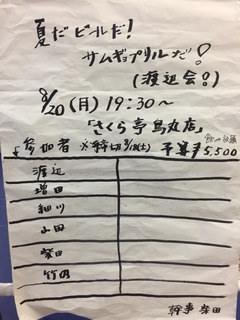 夏だビールだ!
サムギョプサルだ!
(渡辺会!)
8/20(月)19:30〜
「さくら亭烏丸店」
↓参加者 ※〆切8/18(土) 予算¥5,500
渡辺
増田
細川
山田
柴田
竹内
幹事 柴田